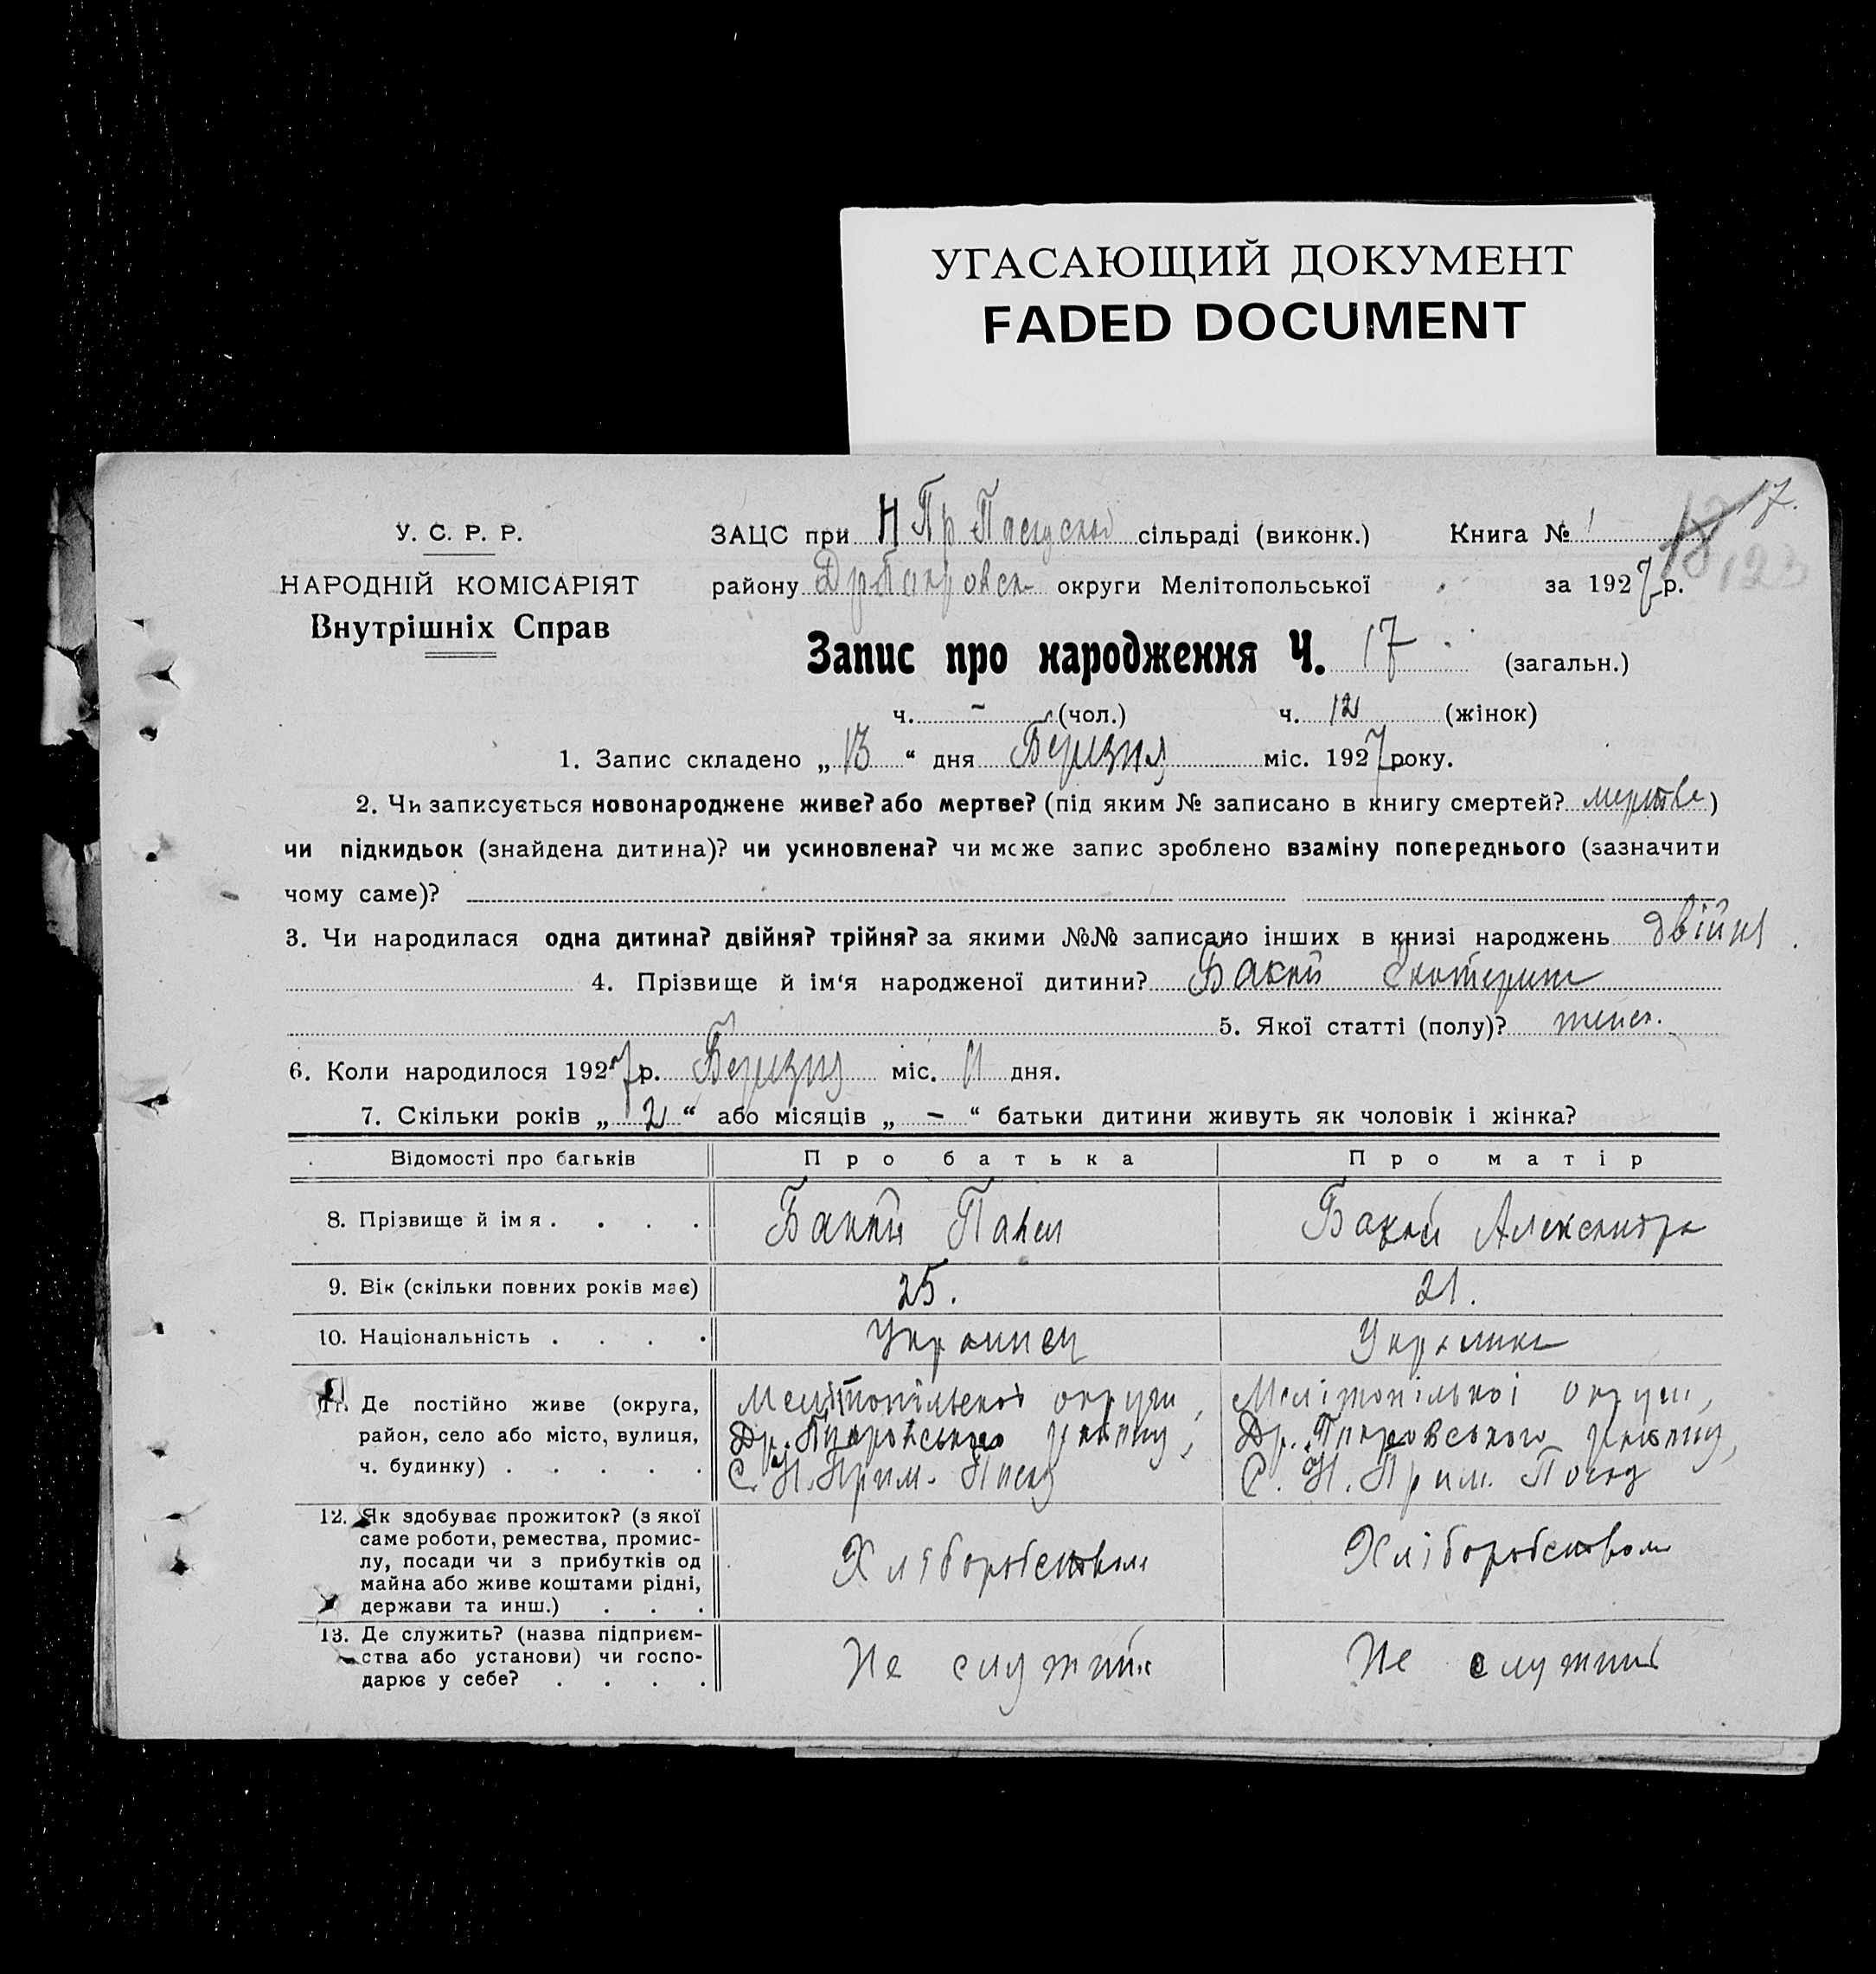 УГАСАЮЩИЙ ДОКУМЕНТ
FADED DOCUMENT
У. С. Р. Р.
НАРОДНІЙ КОМІСАРІЯТ
Внутрішніх Справ
17.
18
123
ЗАЦС при Н Пр сільраді (виконк.) Книга № 1
району округи Мелітопольської за 1927 р.
Запис про народження Ч. 17 (загальн.)
ч. – (чол.) ч. 12 (жінок)
1. Запис складено „13“ дня Березня міс. 1927 року.
2. Чи записується новонароджене живе? або мертве? (під яким № записано в книгу смертей? мертве)
чи підкидьок (знайдена дитина)? чи усиновлена? чи може запис зроблено взаміну попереднього (зазначити
чому саме)?
3. Чи народилася одна дитина? двійня? трійня? за якими №№ записано інших в книзі народжень двійня
4. Прізвище й ім'я народженої дитини? Бакай Екатерина
5. Якої статті (полу)? женс.
6. Коли народилося 1927 р. Березня міс. 11 дня.
7. Скільки років „2“ або місяців „–“ батьки дитини живуть як чоловік і жінка?
Відомості про батьків Про батька Про матір
8. Прізвище й імя . . . . Бакай Павел Бакай Александра
9. Вік (скільки повних років має) 25. 21.
10. Національність . . . . Украинец Украинка
11. Де постійно живе (округа, район, село або місто, вулиця, ч. будинку) . . . . .
Мелітопільскоі округи, Мелітопільскоі округи,
Др. Покровського району, Др. Покровського району,
С. Н. Прим. Посад С. Н. Прим. Посад
12. Як здобуває прожиток? (з якої
саме роботи, ремества, промис-
лу, посади чи з прибутків од
майна або живе коштами рідні,
держави та инш.) . . .
Хліборобством Хліборобством
13. Де служить? (назва підприєм-
ства або установи) чи госпо-
дарює у себе? . . . .
Не служить Не служить